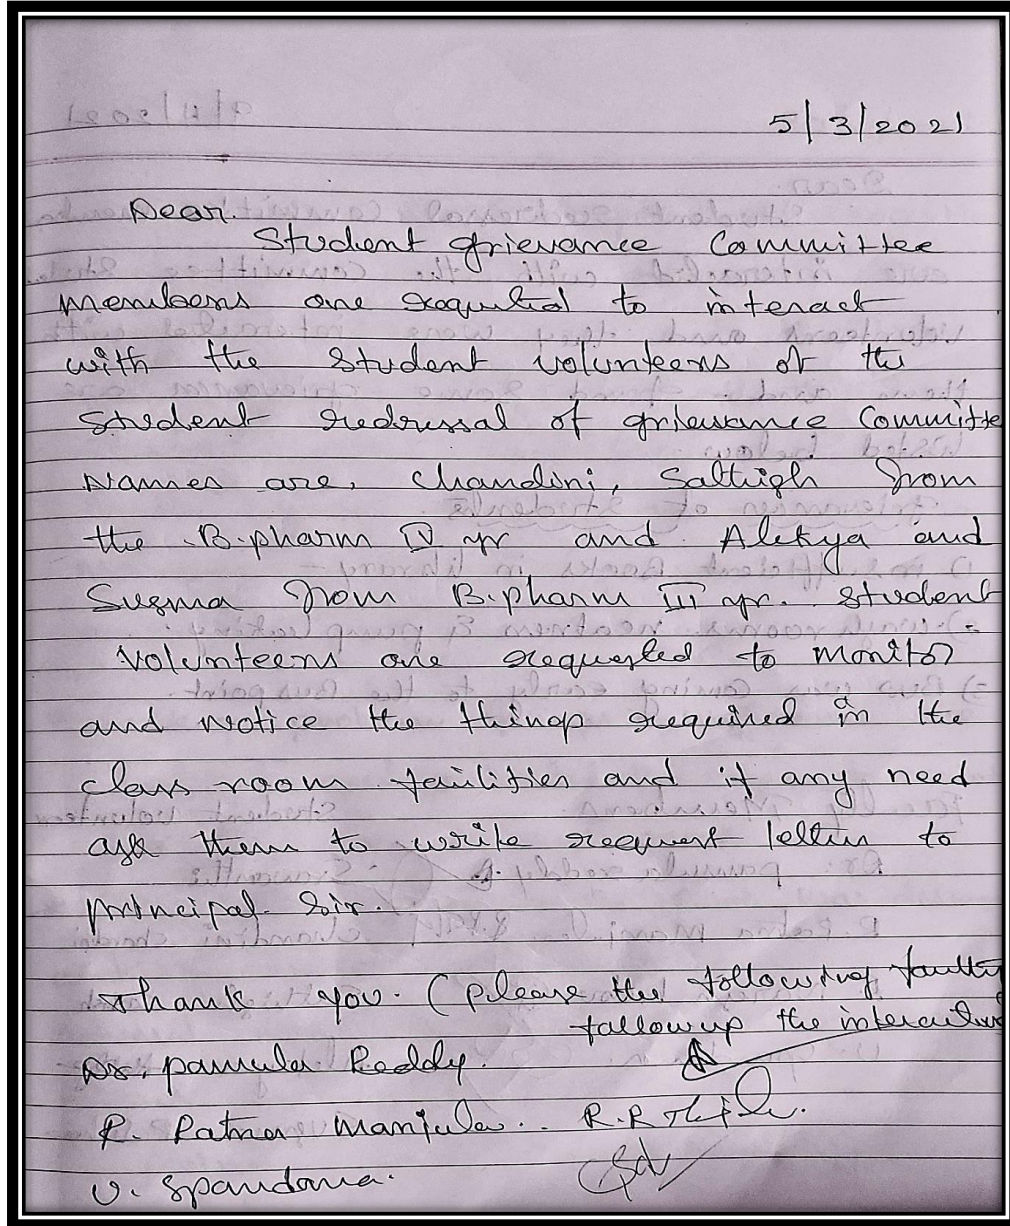 5/3/2021
Dear.
Student grievance Committee
members are requested to interact
with the Student volunteers of the
Student redressal of grievance Committe
Names are, Chandini, Saltigh from
the B.pharm IV yr and Alekya and
Susma from B.pharm III yr. Student
Volunteers are requested to monitor
and notice the things required in the
class room failities and if any need
ask them to write request letter to
principal Sir.
Thank you. (please the following faulty
fallowup the
Dr. pamula Reddy.
R. Ratna Manjula..
V. Spandana.